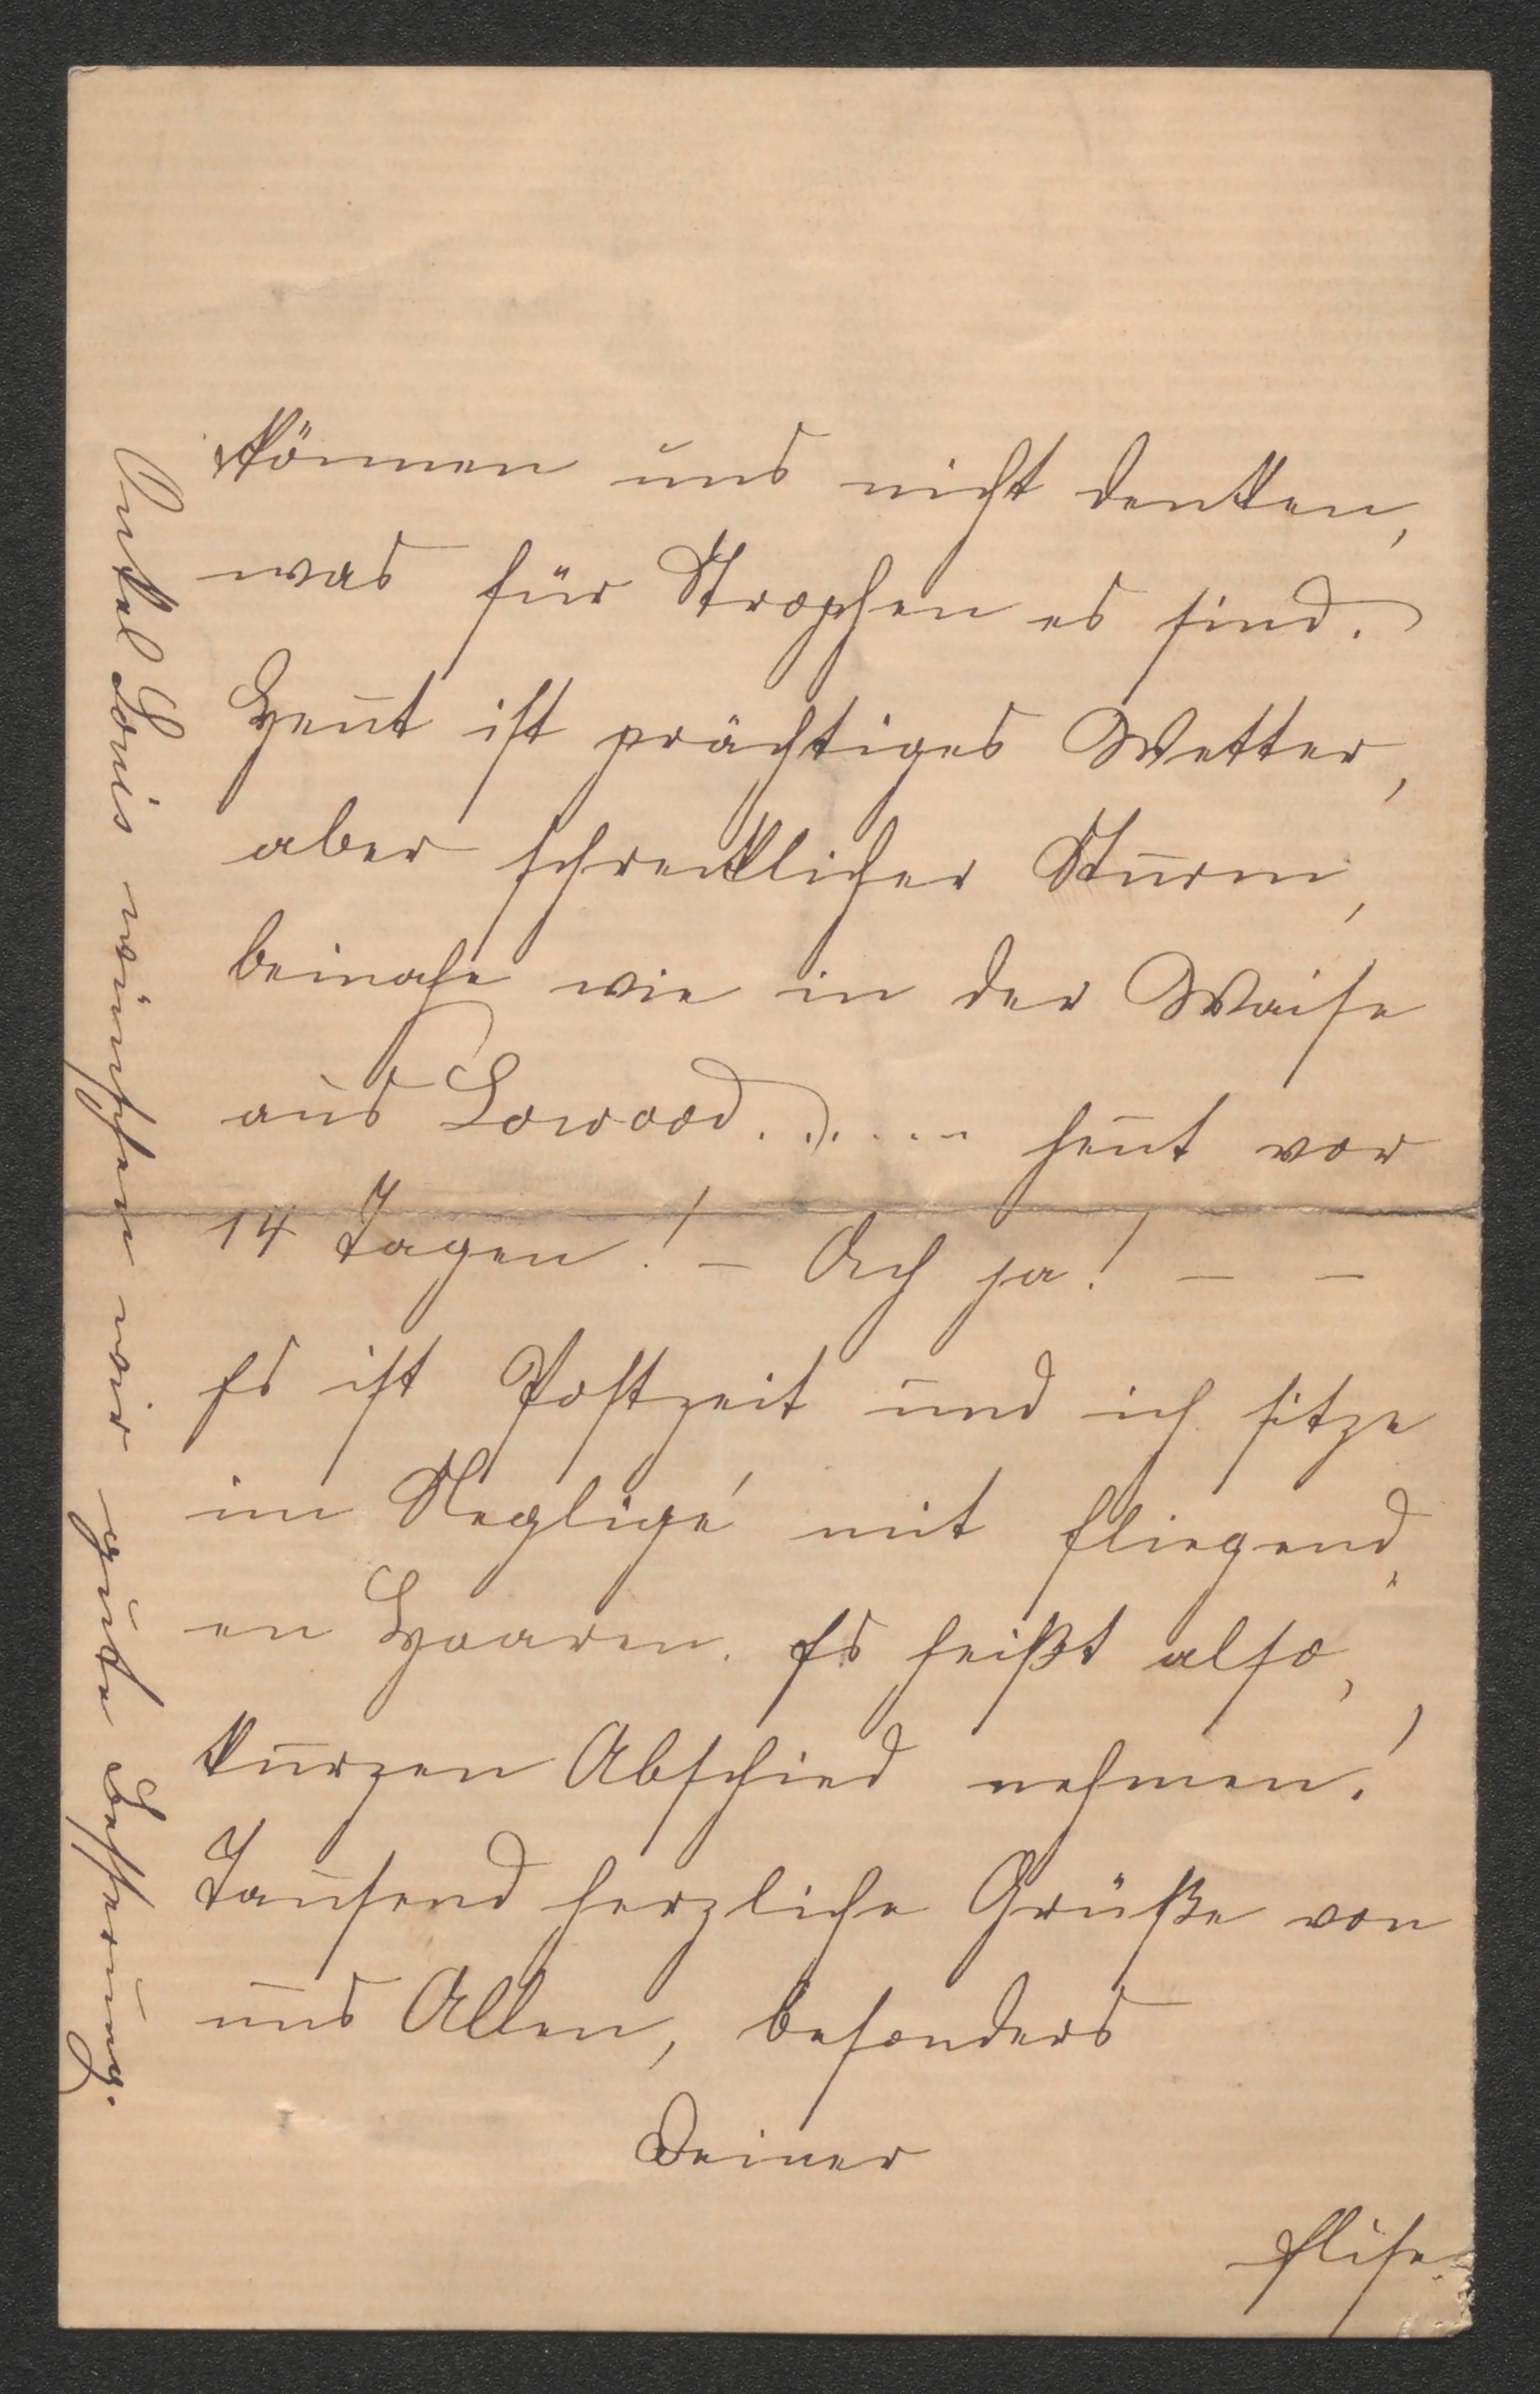 können uns nicht denken,
was für Strophen es sind.
Heut ist prächtiges Wetter,
aber schrecklicher Sturm,
beinahe wie in der Waise
aus Lowood. . . . . . heut vor
14 Tagen! – Ach ja! – –
Es ist Postzeit und ich sitze
im Negligé mit fliegend,
en Haaren. Es heißt also,
kurzen Abschied nehmen!
Tausend herzliche Grüße von
uns Allen, besonders
Deiner
Elise.
Onkel Louis wünschen wir gute Besserung.